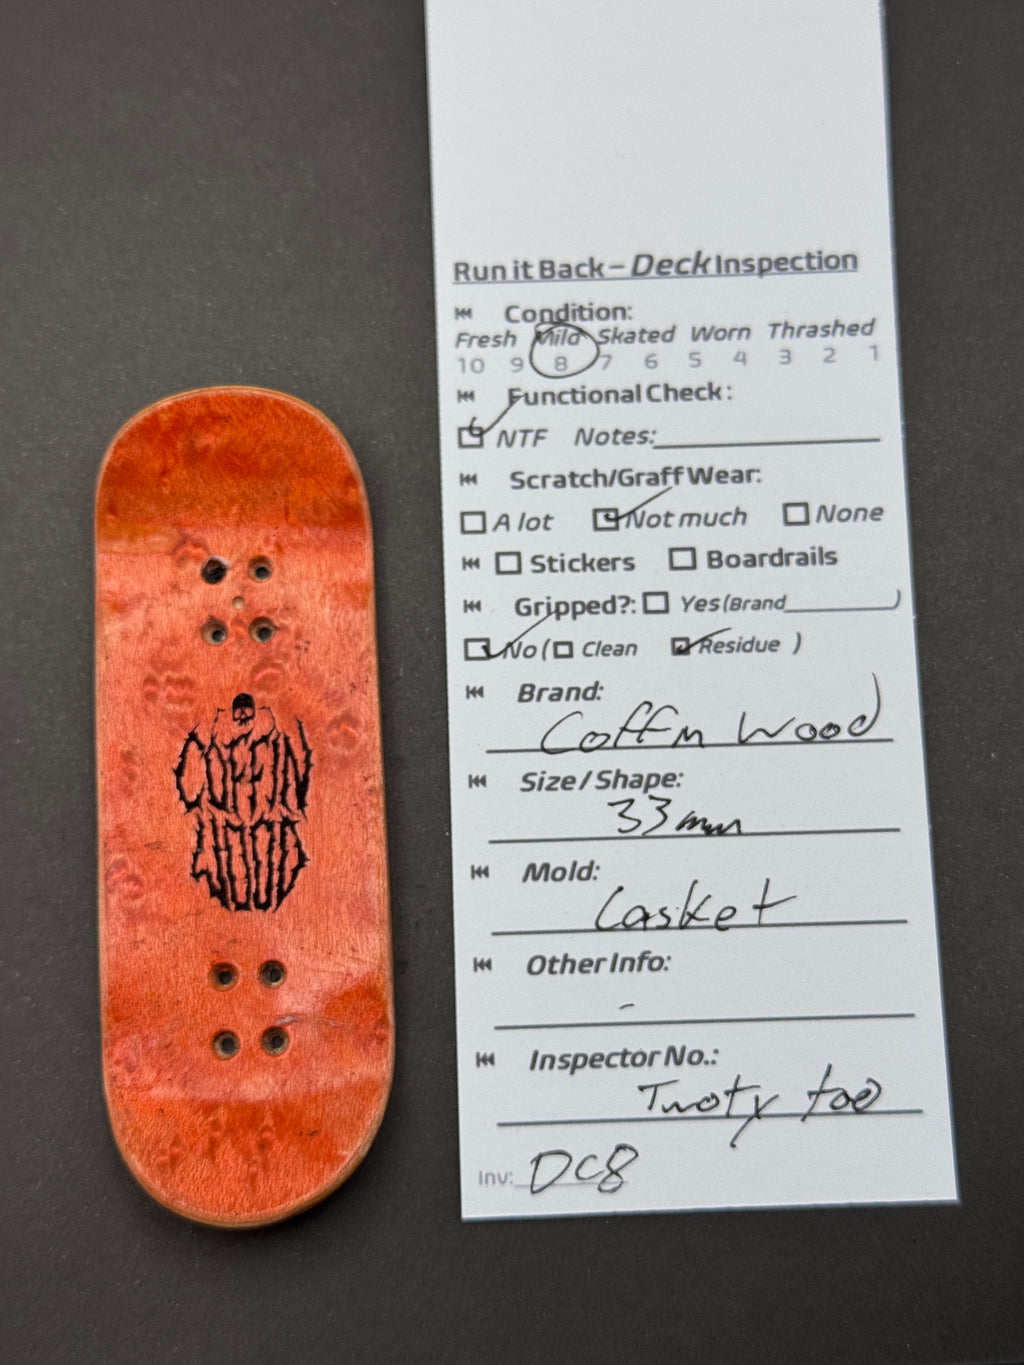 COFFIN
WOOD
Run it Back – Deck Inspection
Condition:
Fresh Mild Skated Worn Thrashed
10 9 8 7 6 5 4 3 2 1
Functional Check:
NTF Notes:
Scratch/Graff Wear:
A lot Not much None
Stickers Boardrails
Gripped?: Yes (Brand )
No ( Clean Residue )
Brand:
Coffin Wood
Size / Shape:
33mm
Mold:
Casket
Other Info:
-
Inspector No.:
Twoty too
Inv: DC8